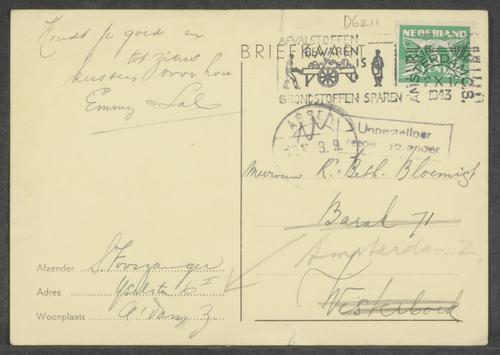 Houdt je goed en
tot ziens
kusten voor hou
Emmy Sal
D6211
BRIEFKAART
AFVALSTOFFEN
BEWAREN
IS
GRONDSTOFFEN SPAREN
NEDERLAND
AMSTERDAM
1943
ASSEN
Unbestellbar
Mevrouw R. Beth-Bloemist
Barak 71
Amsterdam Z.
Westerbork
Afzender
Adres
Woonplaats A'dam Z.